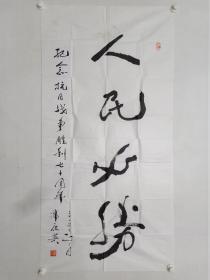 人民必勝
纪念抗日战争胜利七十周年